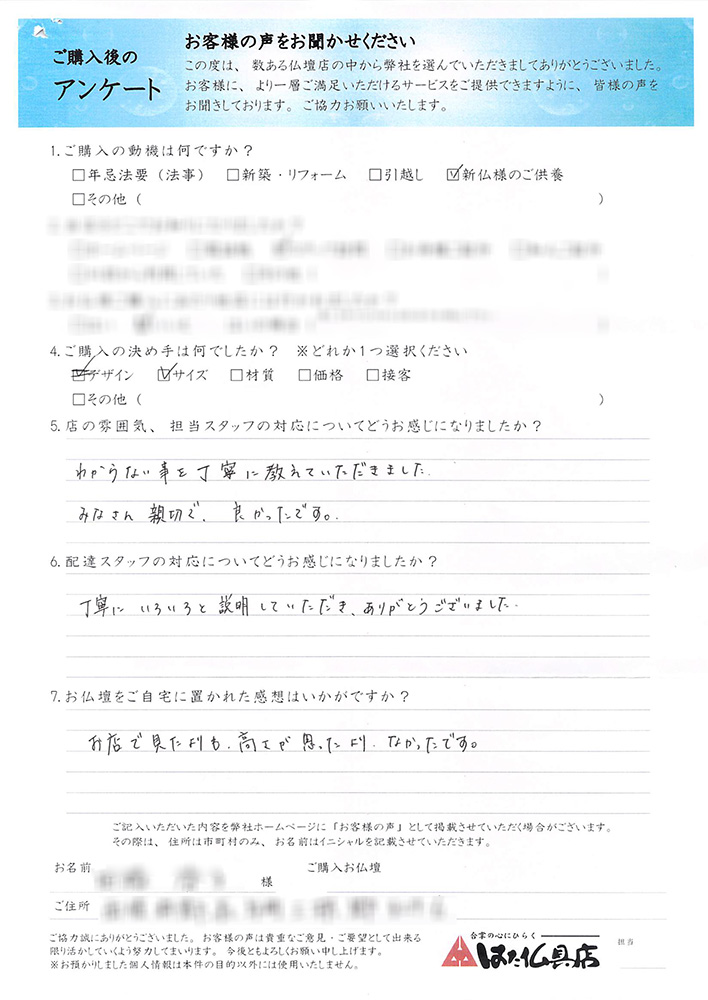 ご購入後の
アンケート
お客様の声をお聞かせください
この度は、数ある仏壇店の中から弊社を選んでいただきましてありがとうございました。
お客様に、より一層ご満足いただけるサービスをご提供できますように、皆様の声を
お聞きしております。ご協力お願いいたします。
1.ご購入の動機は何ですか？
□年忌法要（法事） □新築・リフォーム □引越し ☑新仏様のご供養
□その他（ ）
4.ご購入の決め手は何でしたか？ ※どれか1つ選択ください
☑デザイン ☑サイズ □材質 □価格 □接客
□その他（ ）
5.店の雰囲気、担当スタッフの対応についてどうお感じになりましたか？
わからない事を丁寧に教えていただきました.
みなさん親切で、良かったです。
6.配達スタッフの対応についてどうお感じになりましたか？
丁寧にいろいろと説明していただき、ありがとうございました.
7.お仏壇をご自宅に置かれた感想はいかがですか？
お店で見たよりも、高さが思ったより、なかったです。
ご記入いただいた内容を弊社ホームページに『お客様の声』として掲載させていただく場合がございます。
その際は、住所は市町村のみ、お名前はイニシャルを記載させていただきます。
お名前 様 ご購入お仏壇
ご住所
ご協力誠にありがとうございました。お客様の声は貴重なご意見・ご要望として出来る
限り活かしていくよう努力してまいります。今後ともよろしくお願い申し上げます。
※お預かりしました個人情報は本件の目的以外には使用いたしません。
合掌の心にひらく
はた仏具店
担当